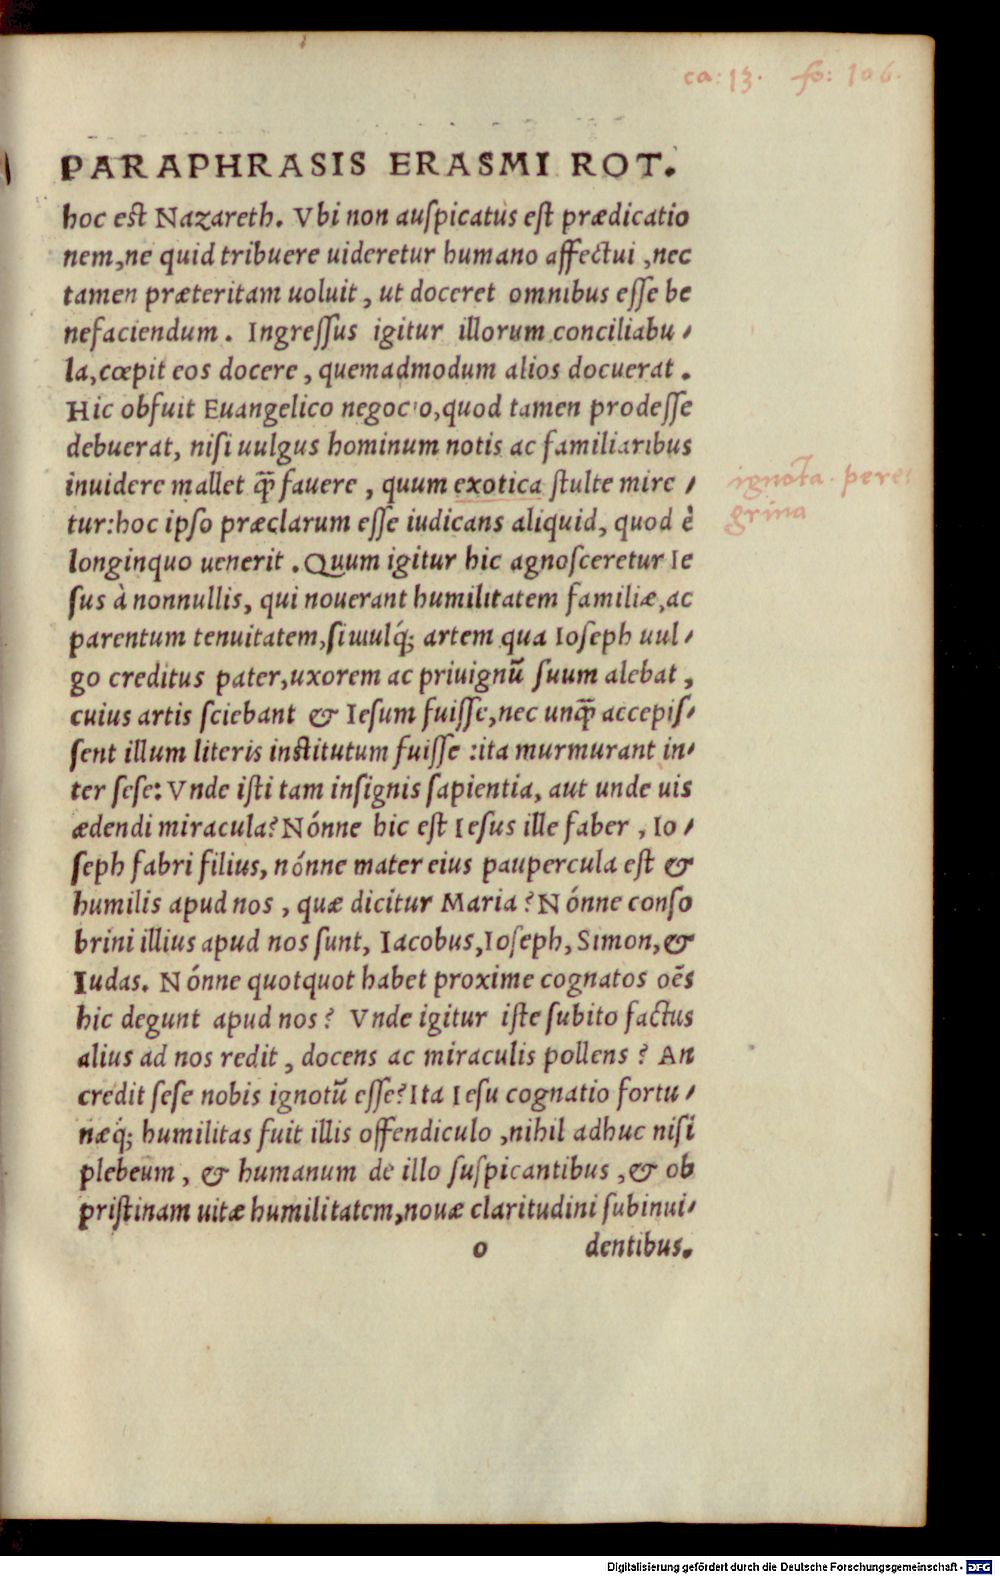 ca: 13. fo: 106.
PARAPHRASIS ERASMI ROT.
hoc est Nazareth. Vbi non auſpicatus eſt prædicatio
nem,ne quid tribuere uideretur humano affectui ,nec
tamen præteritam uoluit, ut doceret omnibus eſſe be
nefaciendum. Ingreſſus igitur illorum conciliabu⸗
la,cœpit eos docere, quemadmodum alios docuerat.
Hic obfuit Euangelico negocio,quod tamen prodeſſe
debuerat, niſi uulgus hominum notis ac familiaribus
inuidere mallet q̃ꝫ fauere, quum exotica ſtulte mire⸗
ignota. pere
tur:hoc ipſo præclarum eſſe iudicans aliquid, quod è
grina
longinquo uenerit. Quum igitur hic agnoſceretur Ie
ſus à nonnullis, qui nouerant humilitatem familiæ,ac
parentum tenuitatem,ſimulq́; artem qua Ioſeph uul⸗
go creditus pater,uxorem ac priuignũ ſuum alebat,
cuius artis ſciebant & Ieſum fuiſſe,nec unq̃ꝫ accepiſ⸗
ſent illum literis inſtitutum fuiſſe :ita murmurant in⸗
ter ſeſe: Vnde iſti tam inſignis ſapientia, aut unde uis
ædendi miracula? Nónne hic eſt Ieſus ille faber, Io⸗
ſeph fabri filius, nónne mater eius paupercula eſt &
humilis apud nos, quæ dicitur Maria? Nónne conſo
brini illius apud nos ſunt, Iacobus,Ioſeph, Simon,&
Iudas. Nónne quotquot habet proxime cognatos oẽs
hic degunt apud nos? Vnde igitur iſte ſubito factus
alius ad nos redit, docens ac miraculis pollens? An
credit ſeſe nobis ignotũ eſſe? Ita Ieſu cognatio fortu⸗
næq́; humilitas fuit illis offendiculo ,nihil adhuc niſi
plebeum, & humanum de illo ſuſpicantibus ,& ob
priſtinam uitæ humilitatem,nouæ claritudini ſubinui⸗
o dentibus.
Digitalisierung gefördert durch die Deutsche Forschungsgemeinschaft - DFG